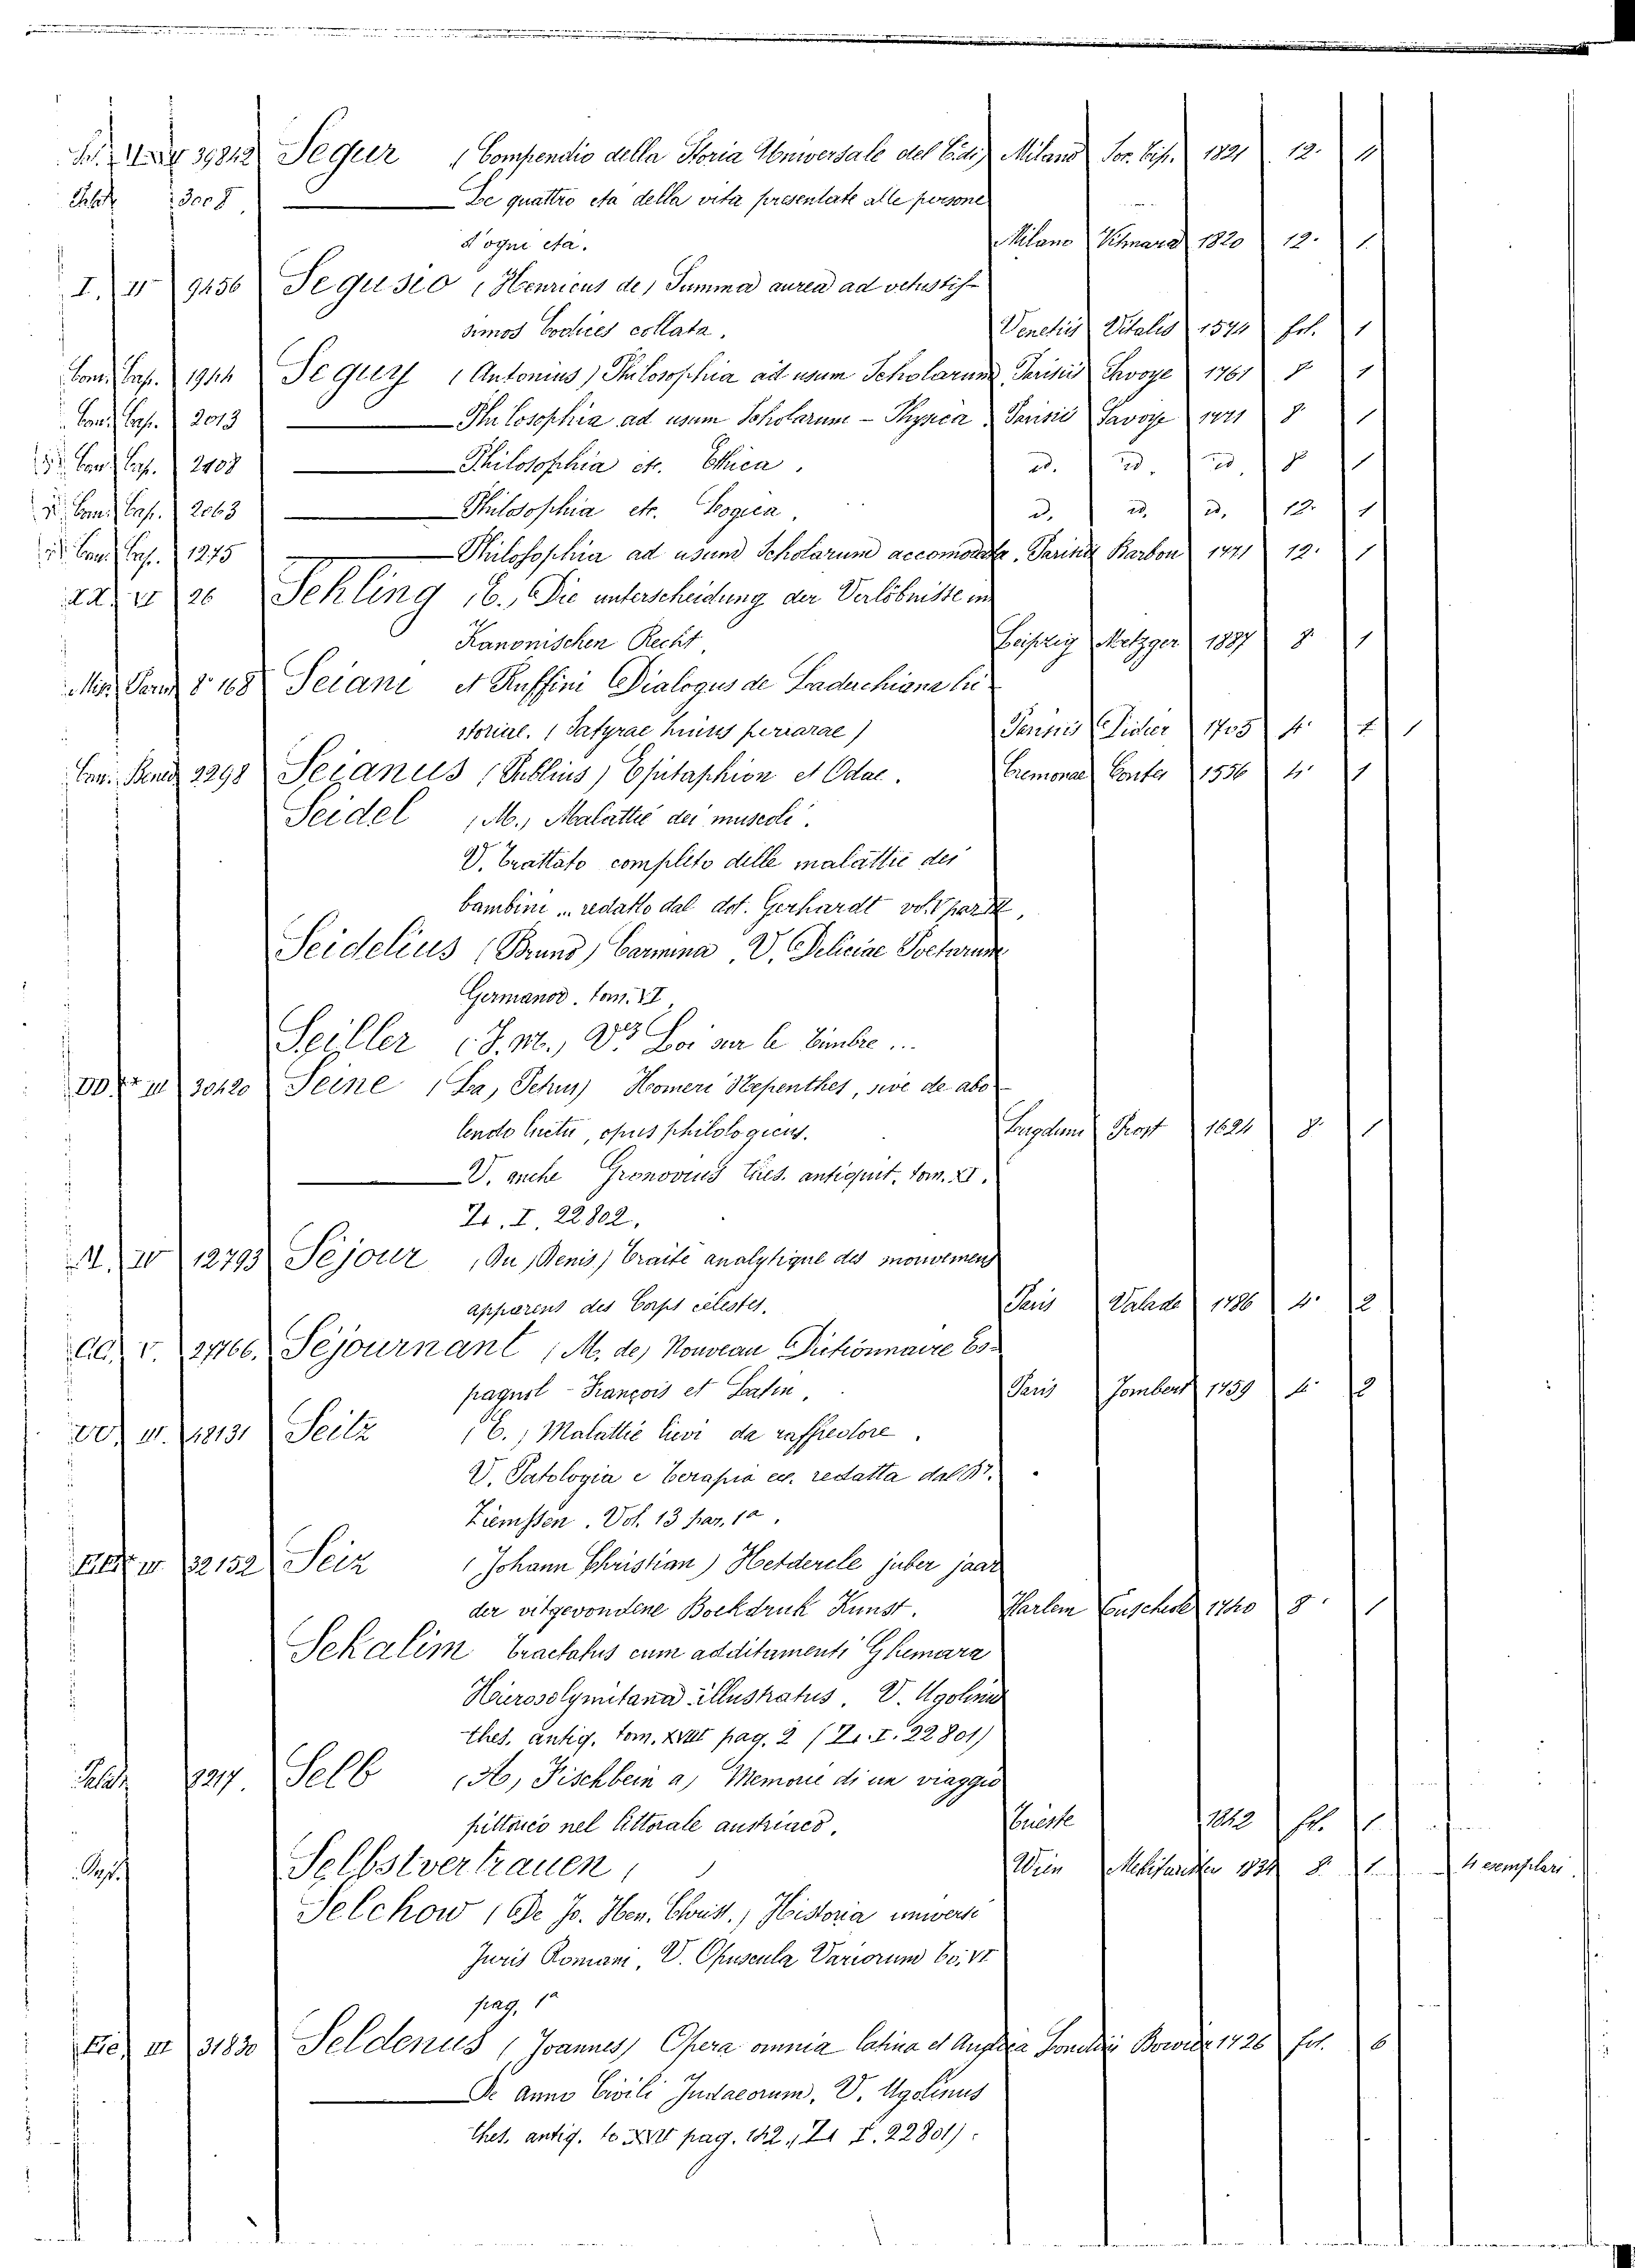 39842 Segur (Compendio della Storia Universale del Milano Soc. Tip. 1821 12. 11
3008 Le quattro età della vita presentate alle persone
d'ogni età. Milano 1820 12. 1.
I. II 9456 Segusio (Henricus de) Summa aurea ad vetustis-
simos Codices collata. Venetiis Vitalis 1574 fol. 1
Com. Cap. 1944 Seguy (Antonius) Philosophia ad usum Scholarum. Parisiis Savoye 1761 8 1
Com. Cap. 2013 Philosophia ad usum Scholarum - Physica. Parisiis Savoye 1771 8 1
Com. Cap. 2408 Philosophia etc. Ethica. id. id. id. 8 1
Com. Cap. 2063 Philosophia etc. Logica. id. id. id. 12. 1
Com. Cap. 1275 Philosophia ad usum Scholarum accomodata. Parisiis Barbou 1771 12. 1
26 Sehling (E.) Die unterscheidung der Verlöbnisse im
Kanonischen Recht. Leipzig Metzger 1887 8 1
8° 168 Seiani et Ruffini Dialogus de Laderchiana hi-
storial. (Satyrae huius periarae) Parisiis Didier 1705 4. 1 1
Com. Bened 2298 Seianus (Publius) Epitaphion et Odae. Cremonae Conter 1556 4. 1
Seidel (M.) Malattie dei muscoli.
V. Trattato completo delle malattie dei
bambini ... redatto dal dot. Gerhardt vol. V par. II,
Seidelius (Bruno) Carmina. V. Deliciae Poetarum
Germanor. tom. VI
Seiller (J. M.) Loi sur le timbre ...
DD. III 30420 Seine (La, Jehus) Homeri Nepenthes, sive de abo-
lendo luctu, opus philologicus. Lugduni Prost 1624 8. 1
V. anche Gronovius thes. antiquit. tom. XI.
Zz. I. 22802.
M. IV 12793 Séjour (Du, Denis) Traité analytique des mouvemens
apparens des Corps célestes. Paris Valade 1786 4. 2
CC. V. 27766. Séjournant (M. de) Nouveau Dictionnaire Es-
pagnol - François et Latin. Paris Jombert 1759 4. 2
III. 18131 Seitz (E.) Malattie lievi da raffredore.
V. Patologia e Terapia ec. redatta dal Dr.
Ziemssen. Vol. 13 par. 1a.
32152 Seiz (Johann Christian) Hetderele juber jaar
der vitgevondene Bockdruk Kunst. Harlem Enschede 1740 8. 1
Sekalim Tractatus cum additamenti Ghemara
Hierosolymitana illustratus. V. Ugolinus
thes. antiq. tom. XVIII pag. 2 (Zz. I. 22801)
3217 Selb (A, Fischbein a) Memorie di un viaggio
pittorico nel littorale austriaco. Trieste 1842 fol. 1
Selbstvertrauen, Wien Mekitaristen 1834 8. 1 4 esemplari.
Selchow (De Jo. Hen. Christ.) Historia universi
Juris Romani, V. Opuscula Variorum to. VI
pag. 1a
Ee) III 31830 Seldenus (Joannes) Opera omnia latina et Anglica Londini Bowier 1726 fol. 6
De Anno Civili Judaeorum. V. Ugolinus
thes. antiq. to XVII pag. 142. (Zz I. 22801).